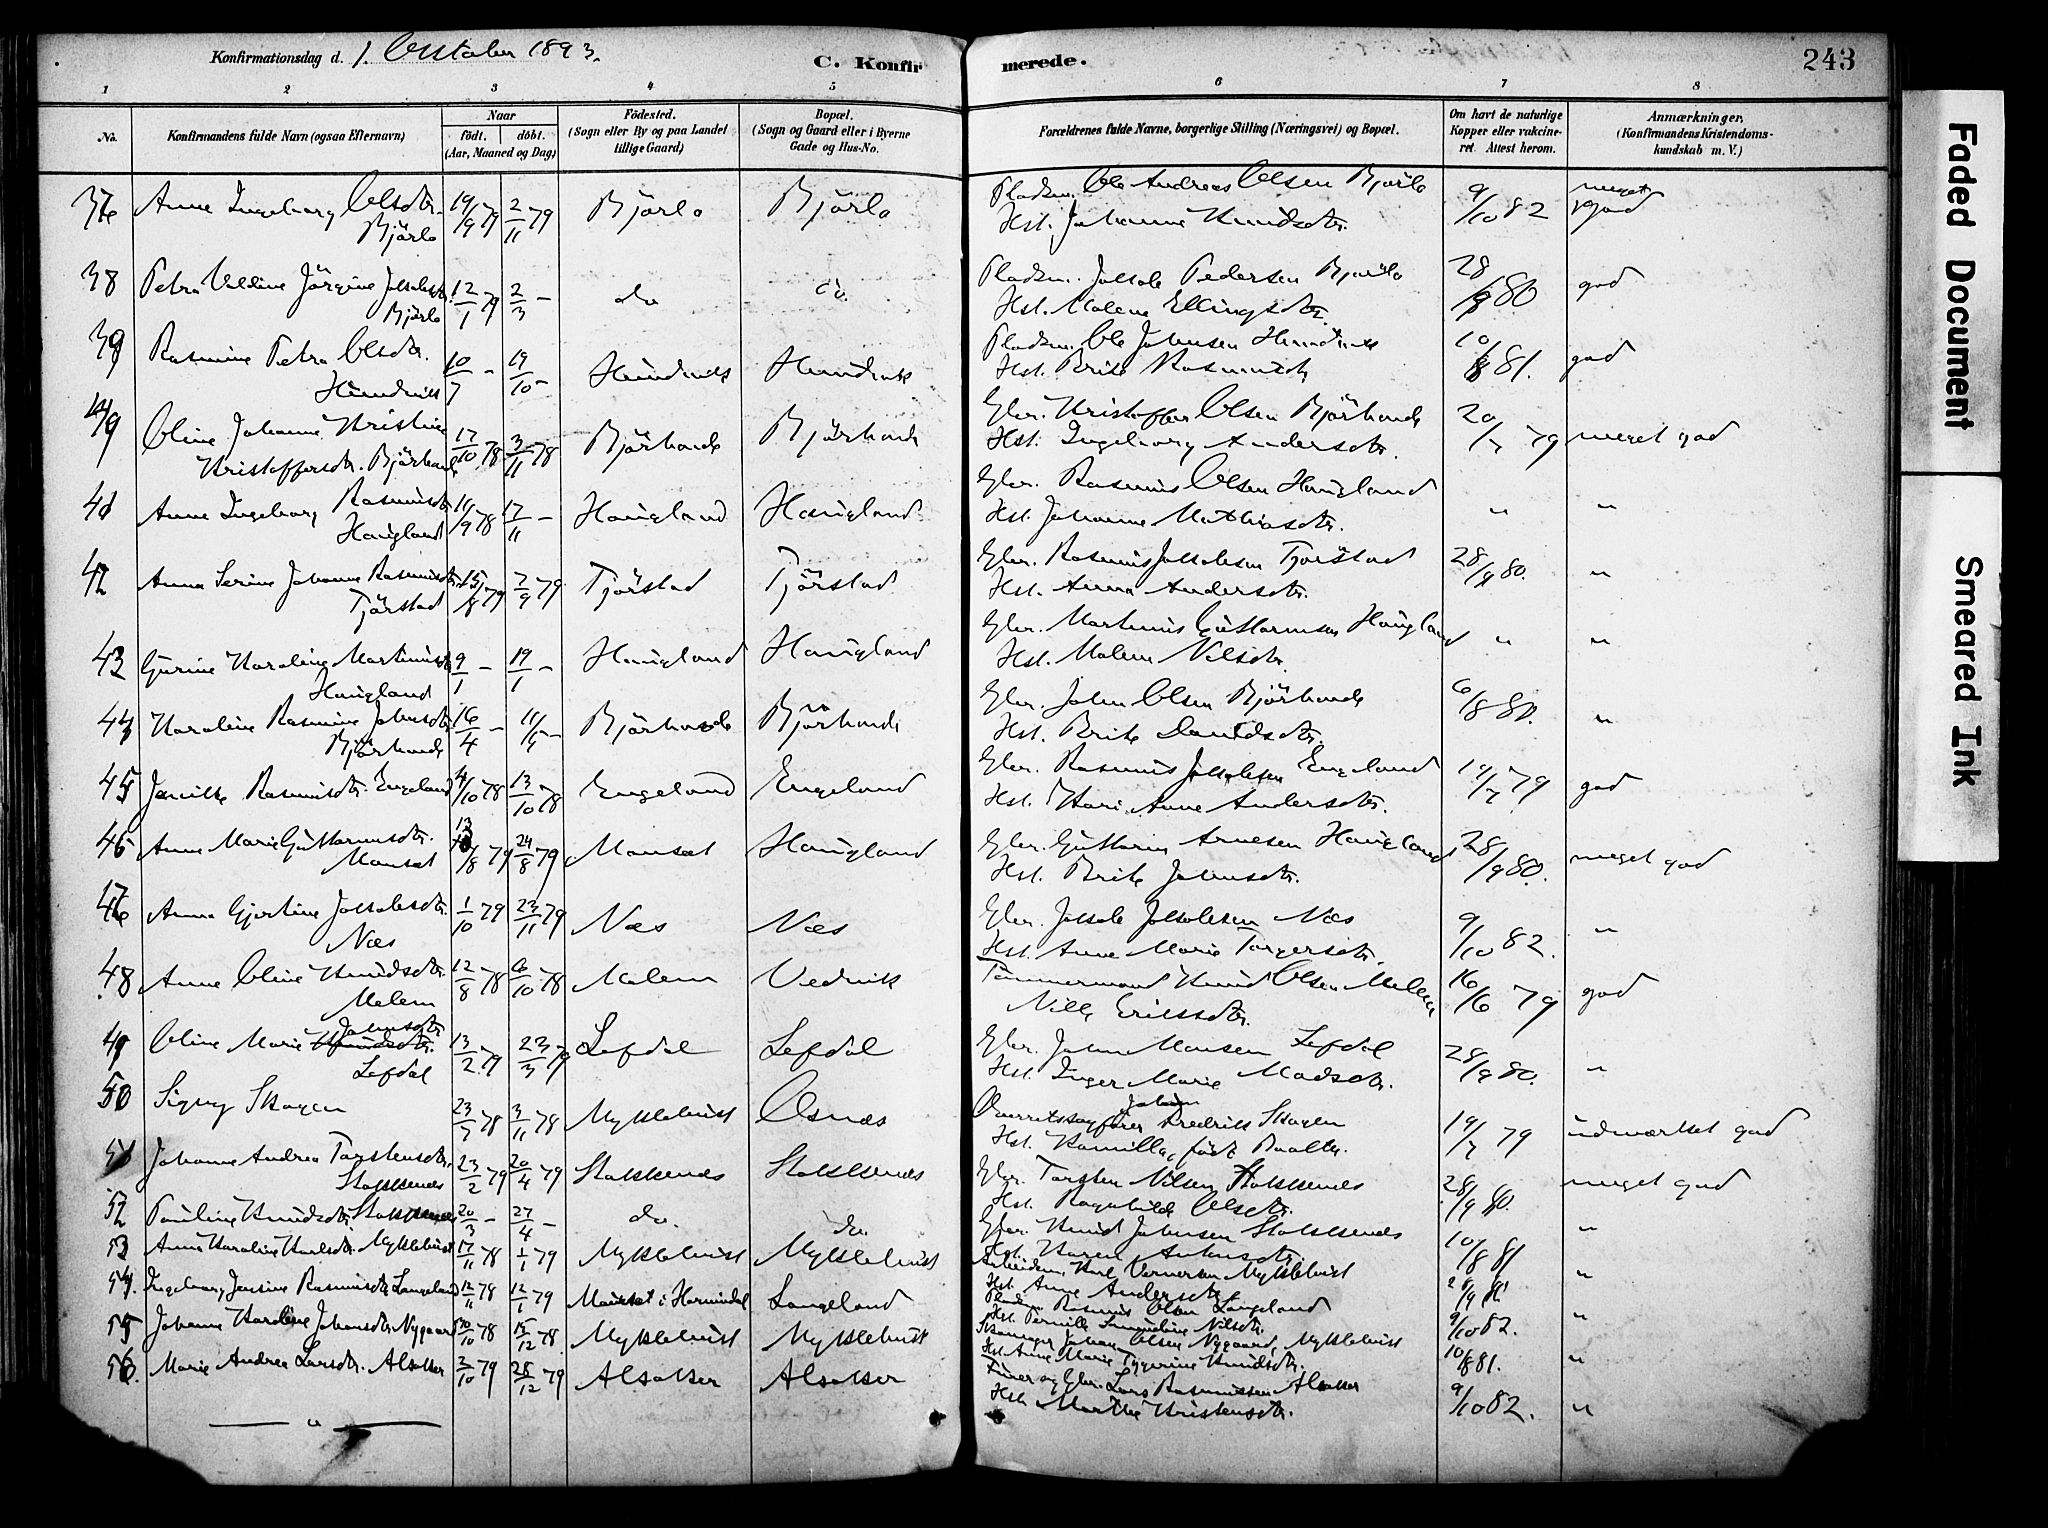 Konfirmationsdag d. 1. Oktober 1893.
C. Konfir
merede.
243
1 2 3 4 5 6 7 8
No.
Konfirmandens fulde Navn (ogsaa Efternavn)
Naar
födt. döbt.
(Aar, Maaned og Dag)
Födested.
(Sogn eller By og paa Landet
tillige Gaard)
Bopæl.
(Sogn og Gaard eller i Byerne
Gade og Hus-No.
Forældrenes fulde Navne, borgerlige Stilling (Næringsvei) og Bopæl.
Om havt de naturlige
Kopper eller vakcine-
ret. Attest herom.
Anmærkninger.
(Konfirmandens Kristendoms-
kundskab m. V.)
Anne Ingeborg Olsdtr. Bjørlo 19/9 79 2/11 79 Bjørlo Bjørlo Pladsm. Ole Andreas Olsen Bjørlo 9/10 82 meget god
Hst. Johanne Knudsdtr.
38 Petra Jørgine Jakobsdtr. Bjørlo 12/1 79 2/3 - do do. Pladsm. Jakob Pedersen Bjørlo 28/9 80 god
Hst. Malene Ellingsdtr.
39 Rasmine Petra Olsdtr. Hundvik 10/7 - 19/10 - Hundvik Hundvik Pladsm. Ole Johnsen Hundvik 10/8 81. god
Hst. Brite Rasmusdtr
Oline Johanne Kristine Kristoffersdtr. Bjørhovde 17/10 78 3/11 78 Bjørhovde Bjørhovde Gbr. Kristoffer Olsen Bjørhovde 20/7 79 meget god
Hst. Ingeborg Andersdtr.
41 Anne Ingeborg Rasmusdtr Haugland 11/9 78 17/11 - Haugland Haugland Gbr. Rasmus Olsen Haugland " "
Hst. Johanne Mathiasdtr.
42 Anna Serine Johanne Rasmusdtr. Tjørstad 15/8 79 7/9 79. Tjørstad Tjørstad Gbr. Rasmus Jakobsen Tjørstad 28/9 80. "
Hst. Anna Andersdtr.
43 Gurine Karoline Martinusdtr Haugland 9/1 - 19/1 - Haugland Haugland Gbr. Martinus Guttormsen Haugland " "
Hst. Malene Nilsdtr.
44 Karoline Rasmine Johnsdtr Bjørhovde 16/4 - Bjørhovde Bjørhovde Gbr. John Olsen Bjørhovde 6/8 80. "
Hst. Brite Davidsdtr.
45 Rasmusdtr. Engeland 4/10 78 13/10 78 Engeland Engeland Gbr. Rasmus Jakobsen Engeland 19/7 79 god
Hst. Kari Anne Andersdtr.
46 Anne Marie Guttormsdtr. Maurset 13/8 79 24/8 79 Haugland Gbr. Guttorm Arnesen Haugland 28/9 80. meget god
Hst. Brite Johnsdtr.
47 Anna Gjertine Jakobsdtr. Næs 1/10 79 23/11 79 Næs Næs Gbr. Jakob Jakobsen Næs 9/10 82. "
Hst. Anne Marie Torgersdtr.
48 Anne Oline Knudsdtr. Malem 12/8 78 6/10 78 Malem Vedvik Tømmermand Knud Olsen Malem 16/6 79 god
Nille Eriksdtr.
49 Oline Marie Johnsdtr Lefdal 13/2 79 23/3 79 Lefdal Lefdal Gbr. John Monsen Lefdal 28/9 80. "
Hst. Inger Marie Madsdtr.
50 Signy Skagen 23/7 78 3/11 78 Myklebust Osnæs Overretssagfører Johan Fredrik Skagen 19/7 79 udmærket god
Hst. Kamilla, født
51 Johanne Andrea Torstensdtr. Stokkenæs 23/2 79 20/4 79 Stokkenæs Stokkenæs Gbr. Torsten Nilsen Stokkenæs 28/9 80. meget god
Hst. Ragnhilde Olsdtr.
52 Pauline Knudsdtr. Stokkenæs 20/3 - 27/4 - do. do. Gbr. Knud Johnsen Stokkenæs "
Hst. Karen
53 Anne Karoline Karlsdtr. Myklebust 17/11 78 1/1 79 Myklebust Myklebust Arbeidsm. Karl Vernersen Myklebust 10/8 81 "
Hst. Anne Andersdtr
54. Ingeborg Jensine Rasmusdtr. Langeland 12/11 78 12/1 79 Maurset i Hornindal Langeland Pladsm. Rasmus Olsen Langeland "
Hst. Pernille Nilsdtr.
55 Johanne Karoline Johansdtr. Nygaard 10/10 78 15/12 78. Myklebust Myklebust Skomager Johan Olsen Nygaard, Myklebust 9/10 82. "
Hst. Anne Marie Knudsdtr. 10/8 81.
56. Marie Andrea Larsdtr. Alsaker 2/10 79 28/12 79 Alsaker Alsaker Gbr. Lars Rasmussen Alsaker 9/10 82. "
Hst. Marthe Kristensdtr.
Faded Document
Smeared Ink